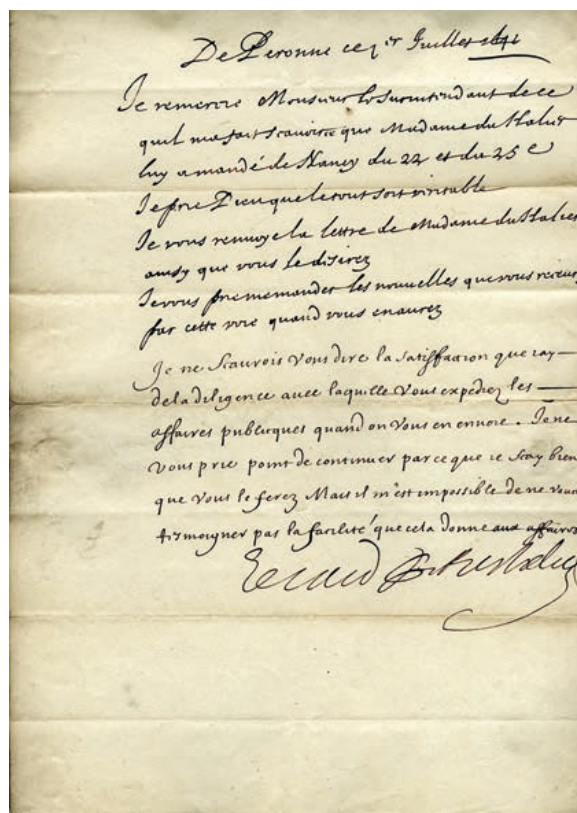 De Peronne ce 1er Juillet 1641
Je remercie Monsieur le Surintendant de ce
quil ma fait scavoir ce que Madame du Halier
luy a mandé de Nancy du 22 et du 25e
Je prie Dieu que le tout soit veritable
Je vous renvoye la lettre de Madame du Halier
ainsy que vous le desirez
Je vous prie me mander les nouvelles que vous recevrez
par cette voie quand vous en aurez
Je ne scaurois vous dire la satisfaction que iay
de la diligence avec laquelle vous expediez les
affaires publicques quand on vous en envoie. Je ne
vous prie point de continuer parce que ie scay bien
que vous le ferez Mais il m'est impossible de ne vous
tesmoigner pas la facilité que cela donne aux affaires
Le Card de Richelieu